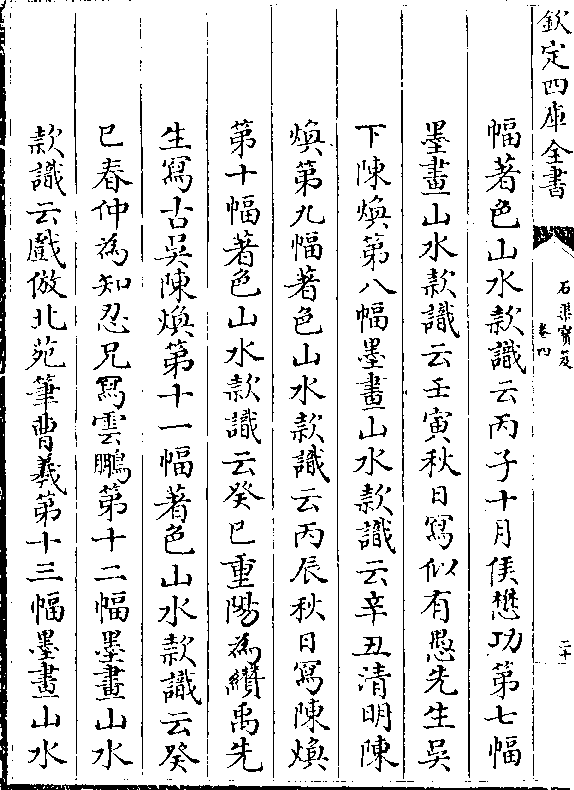 欽定四庫全書
石渠寳笈
卷四
二十
幅著色山水款識云丙子十月侯懋功第七幅
墨畫山水款識云壬寅秋日寫似有愚先生吳
下陳煥第八幅墨畫山水款識云辛丑清明陳
煥第九幅著色山水款識云丙辰秋日寫陳煥
第十幅著色山水款識云癸巳重陽為纘禹先
生寫古吳陳煥第十一幅著色山水款識云癸
巳春仲為知忍兄寫雲鵬第十二幅墨畫山水
款識云戲倣北苑筆曹羲第十三幅墨畫山水